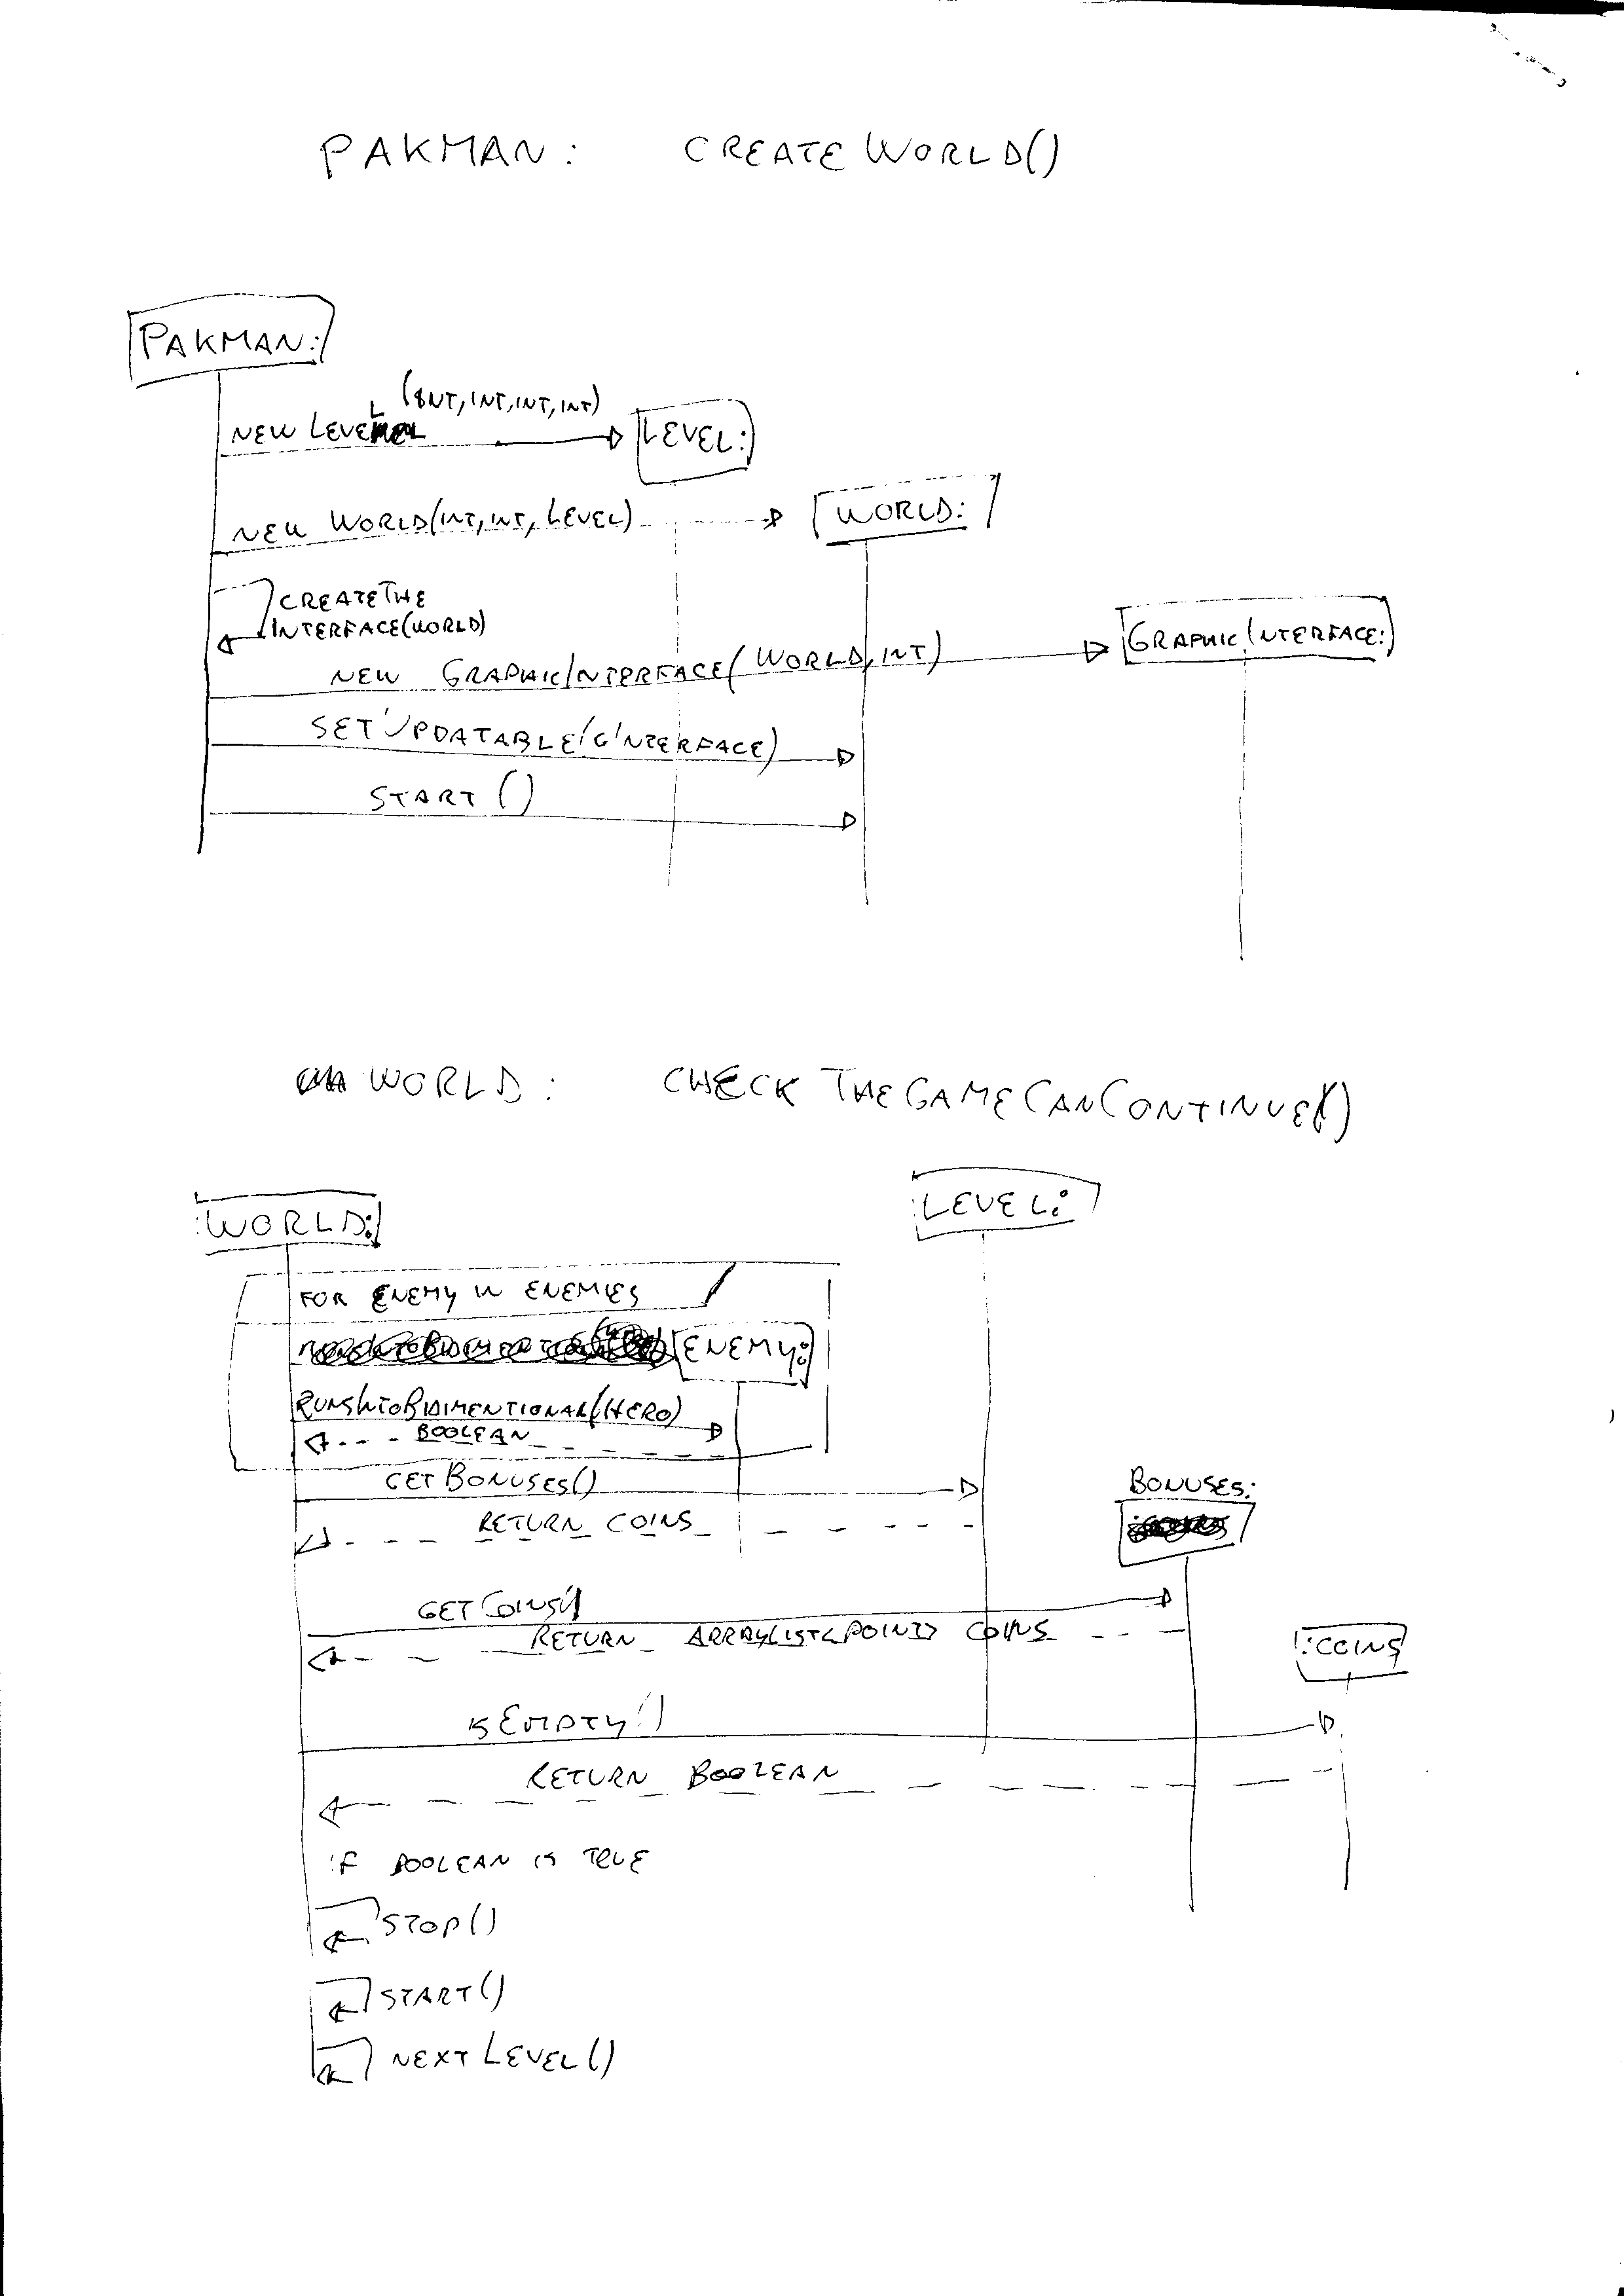 PAKMAN: CREATEWORLD()
PAKMAN:
(INT, INT, INT, INT)
NEW LEVEL
LEVEL:
NEW WORLD(INT, INT, LEVEL)
WORLD:
CREATETHE
INTERFACE(WORLD)
GRAPHICINTERFACE:
NEW GRAPHICINTERFACE(WORLD, INT)
SETUPDATABLE(GINTERFACE)
START()
WORLD: CHECKTHEGAMECANCONTINUE()
WORLD:
LEVEL:
FOR ENEMY IN ENEMIES
ENEMY:
RUNSINTOBIDIMENTIONAL(HERO)
BOOLEAN
GETBONUSES()
BONUSES:
RETURN COINS
GETCOINS()
RETURN ARRAYLIST<POINT> COINS
:COINS
ISEMPTY()
RETURN BOOLEAN
IF BOOLEAN IS TRUE
STOP()
START()
NEXTLEVEL()